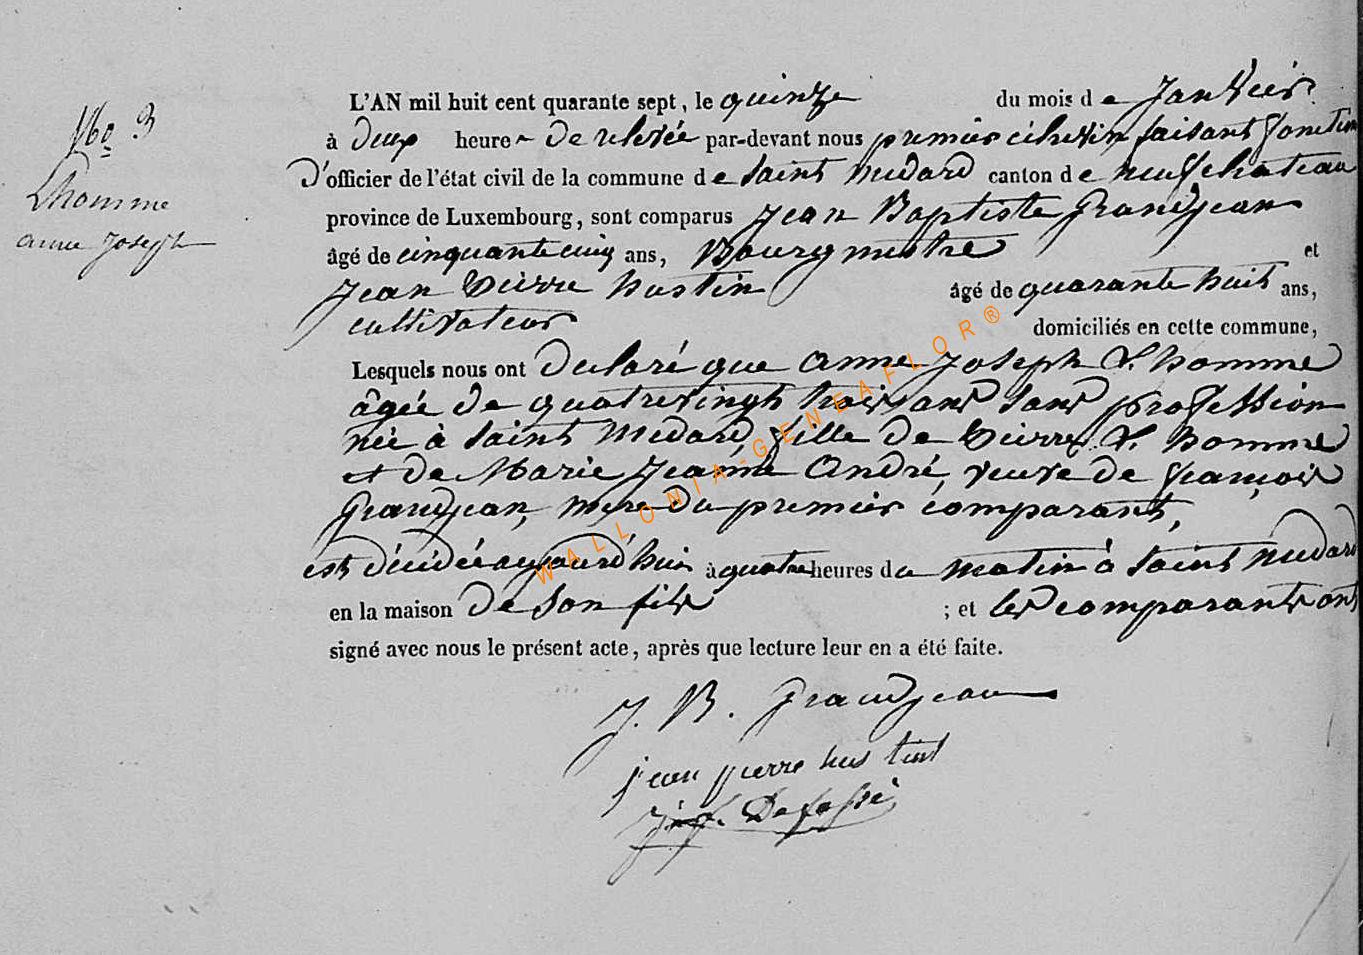 No 3
Lhomme
anne Joseph
L'AN mil huit cent quarante sept, le quinze du mois de Janvier
à deux heures de relevée par-devant nous premier échevin faisant fonction
d'officier de l'état civil de la commune de Saint Medard canton de neufchateau
province de Luxembourg, sont comparus Jean Baptiste Grandjean
âgé de cinquante cinq ans, Bourgmestre et
Jean Pierre hustin âgé de quarante huit ans,
cultivateur domiciliés en cette commune,
Lesquels nous ont déclaré que anne Joseph L'homme
âgée de quatrevingt trois ans sans profession
née à Saint Medard, fille de Pierre L'homme
et de Marie Jeanne André, veuve de françois
Grandjean, mere du premier comparant,
est décédée aujourd'hui à quatre heures du matin à Saint Medard
en la maison de son fils ; et les comparants ont
signé avec nous le présent acte, après que lecture leur en a été faite.
J. B. Grandjean
jean pierre hustint
WALLONIA-GENEAFLOR®